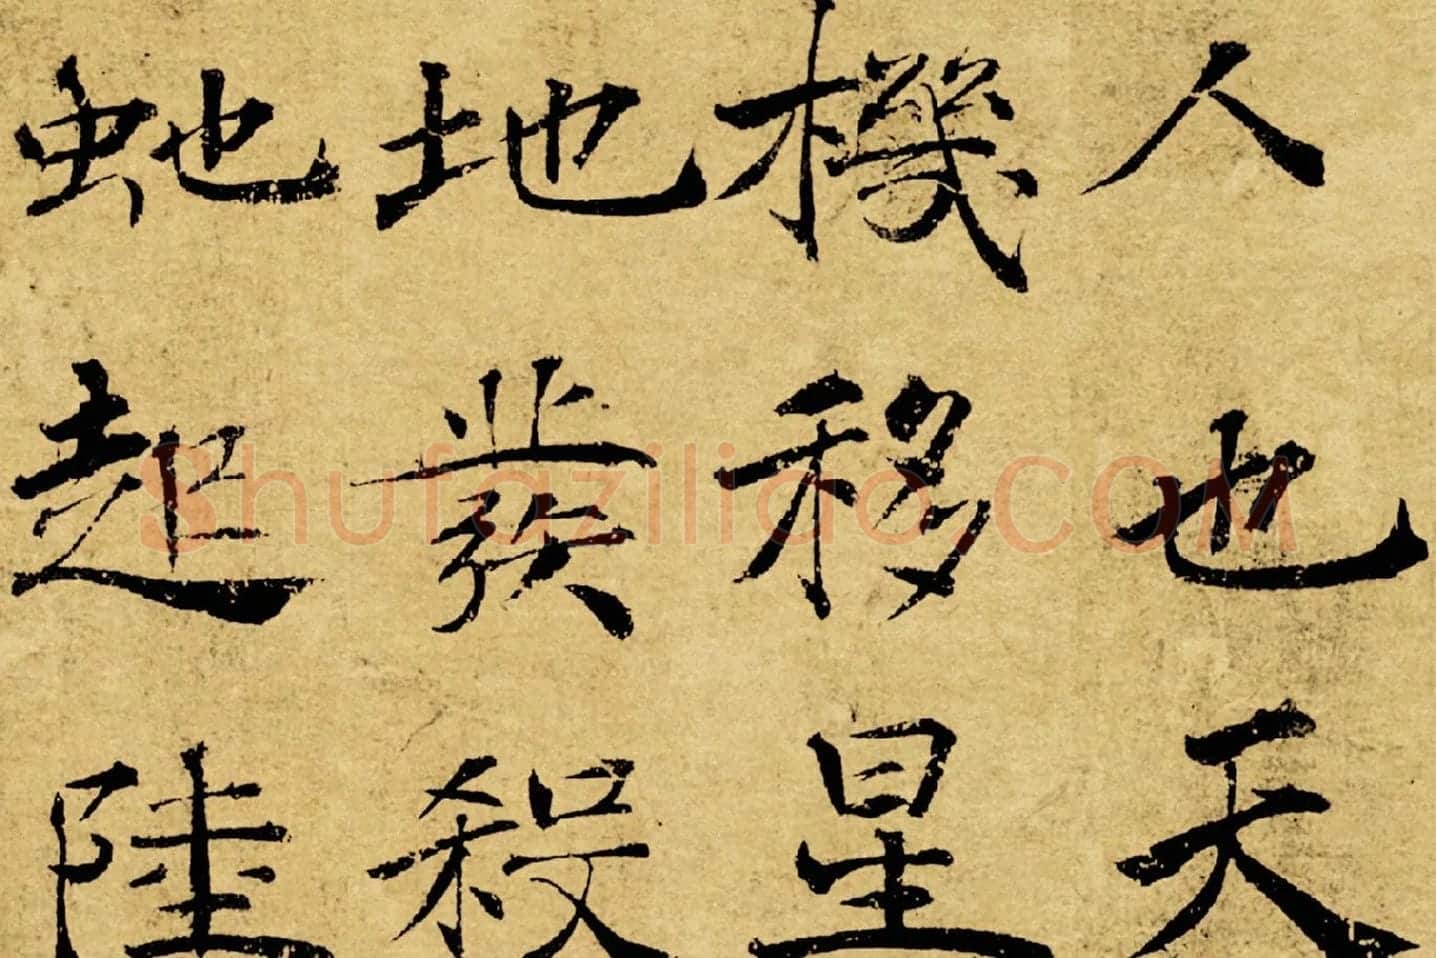 人也天
機移星
地發殺
虵起陸
Shufaziliao.COM